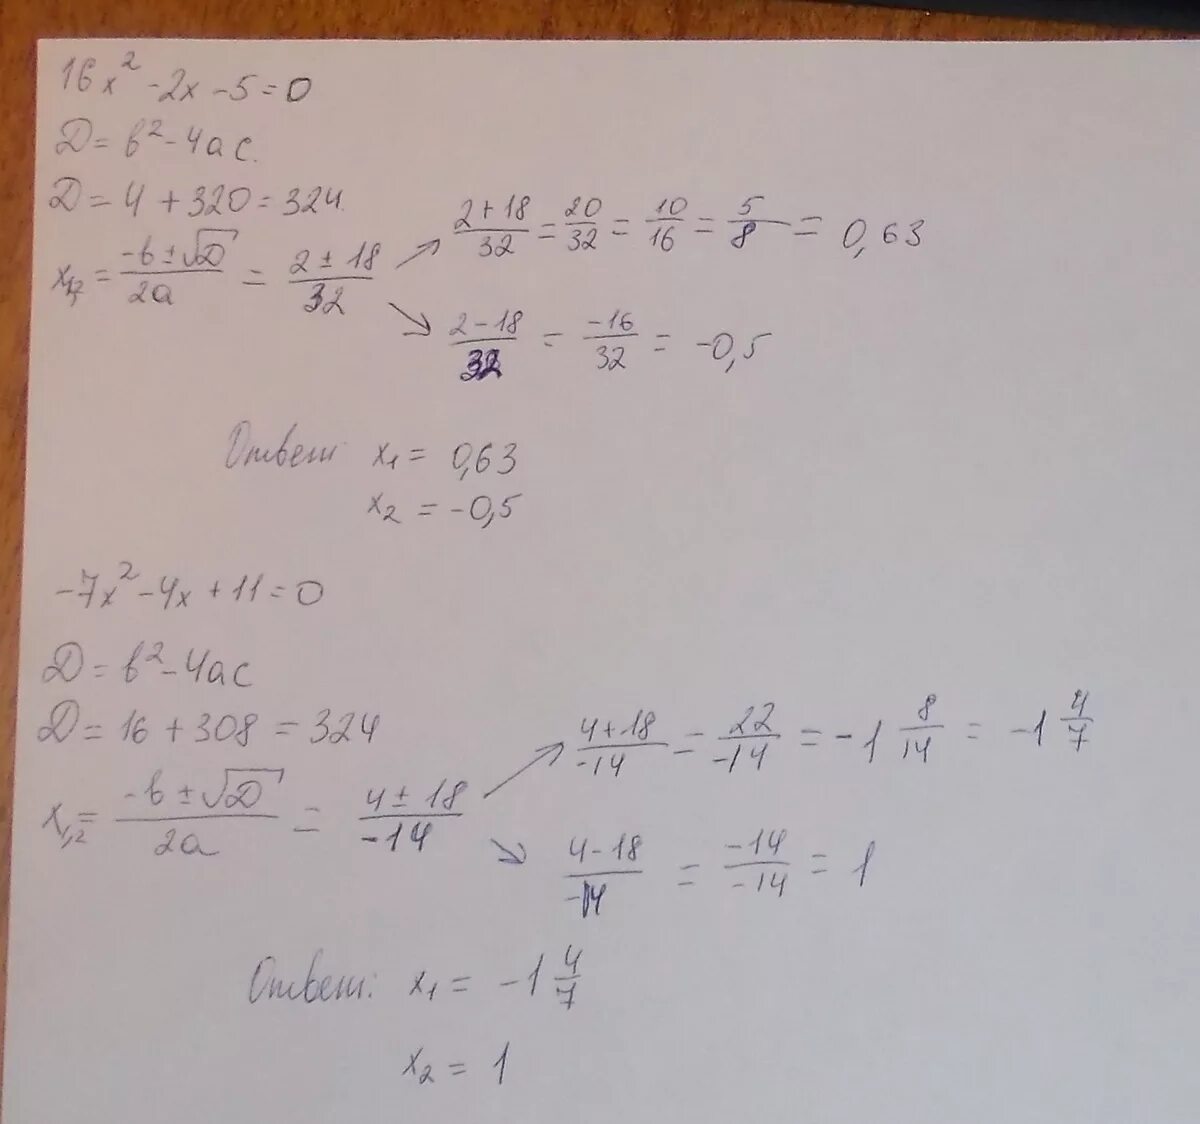 16x² - 2x - 5 = 0
D = b² - 4ac.
D = 4 + 320 = 324.
x₁,₂ = (-b ± √D)/(2a) = (2 ± 18)/32
↗ (2 + 18)/32 = 20/32 = 10/16 = 5/8 = 0,63
↘ (2 - 18)/32 = -16/32 = -0,5
Ответ: x₁ = 0,63
x₂ = -0,5
-7x² - 4x + 11 = 0
D = b² - 4ac
D = 16 + 308 = 324
x₁,₂ = (-b ± √D)/(2a) = (4 ± 18)/(-14)
↗ (4 + 18)/(-14) = 22/(-14) = -1 8/14 = -1 4/7
↘ (4 - 18)/(-14) = -14/-14 = 1
Ответ: x₁ = -1 4/7
x₂ = 1